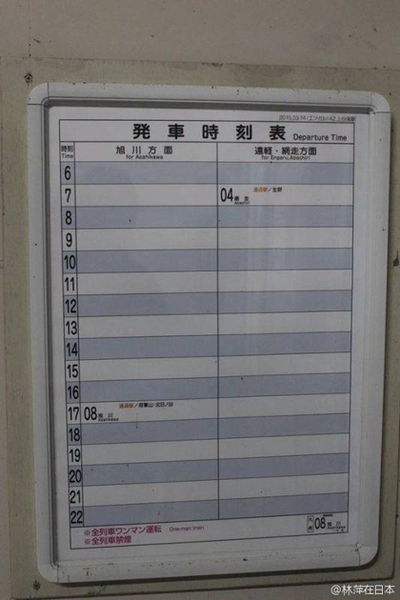 発車時刻表 Departure Time
時刻 Time
旭川方面 for Asahikawa
遠軽・網走方面 for Engaru,Abashiri
6
7 04 網走 Abashiri 通過駅/生野
8
9
10
11
12
13
14
15
16
17 08 旭川 Asahikawa
22
18
19
20
21
※全列車ワンマン運転 One-man train
※全列車禁煙
08 旭川
@林萍在日本